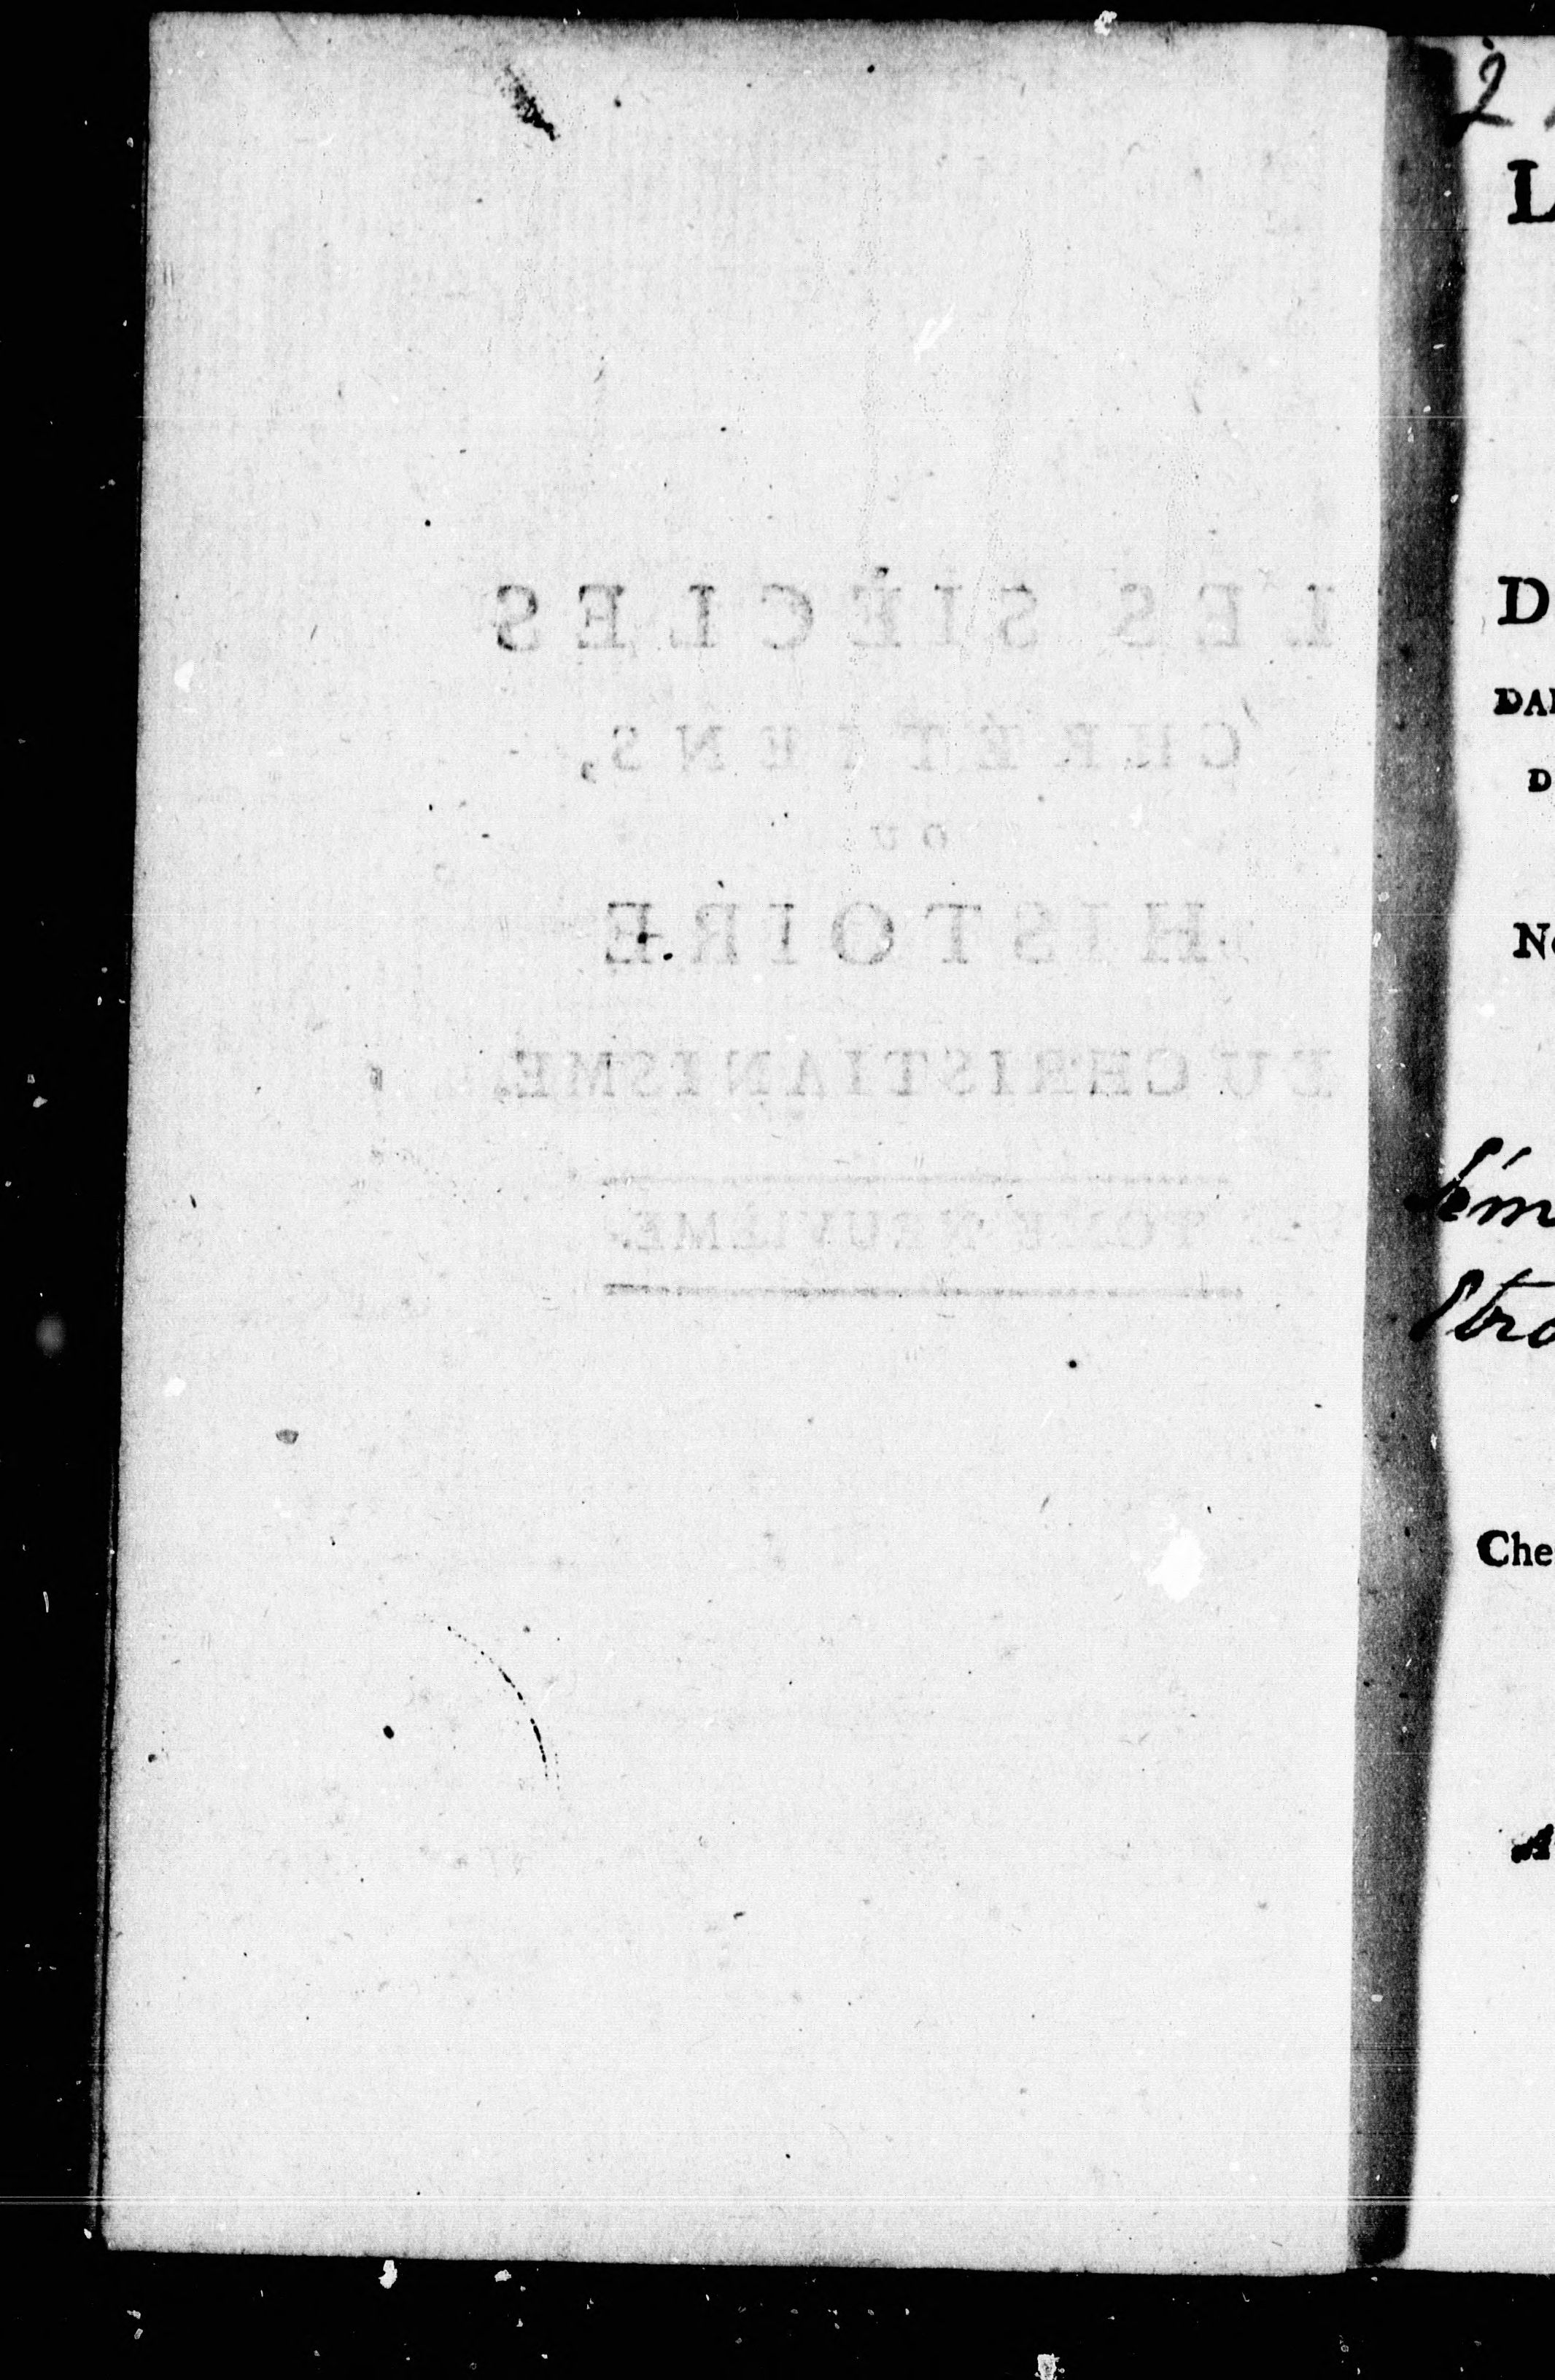 LES SIÉCLES
CHRÉTIENS,
OU
HISTOIRE
DU CHRISTIANISME,
TOME NEUVIÉME.
2
L
D
DA
D
N
Sém
Stra
Che
A